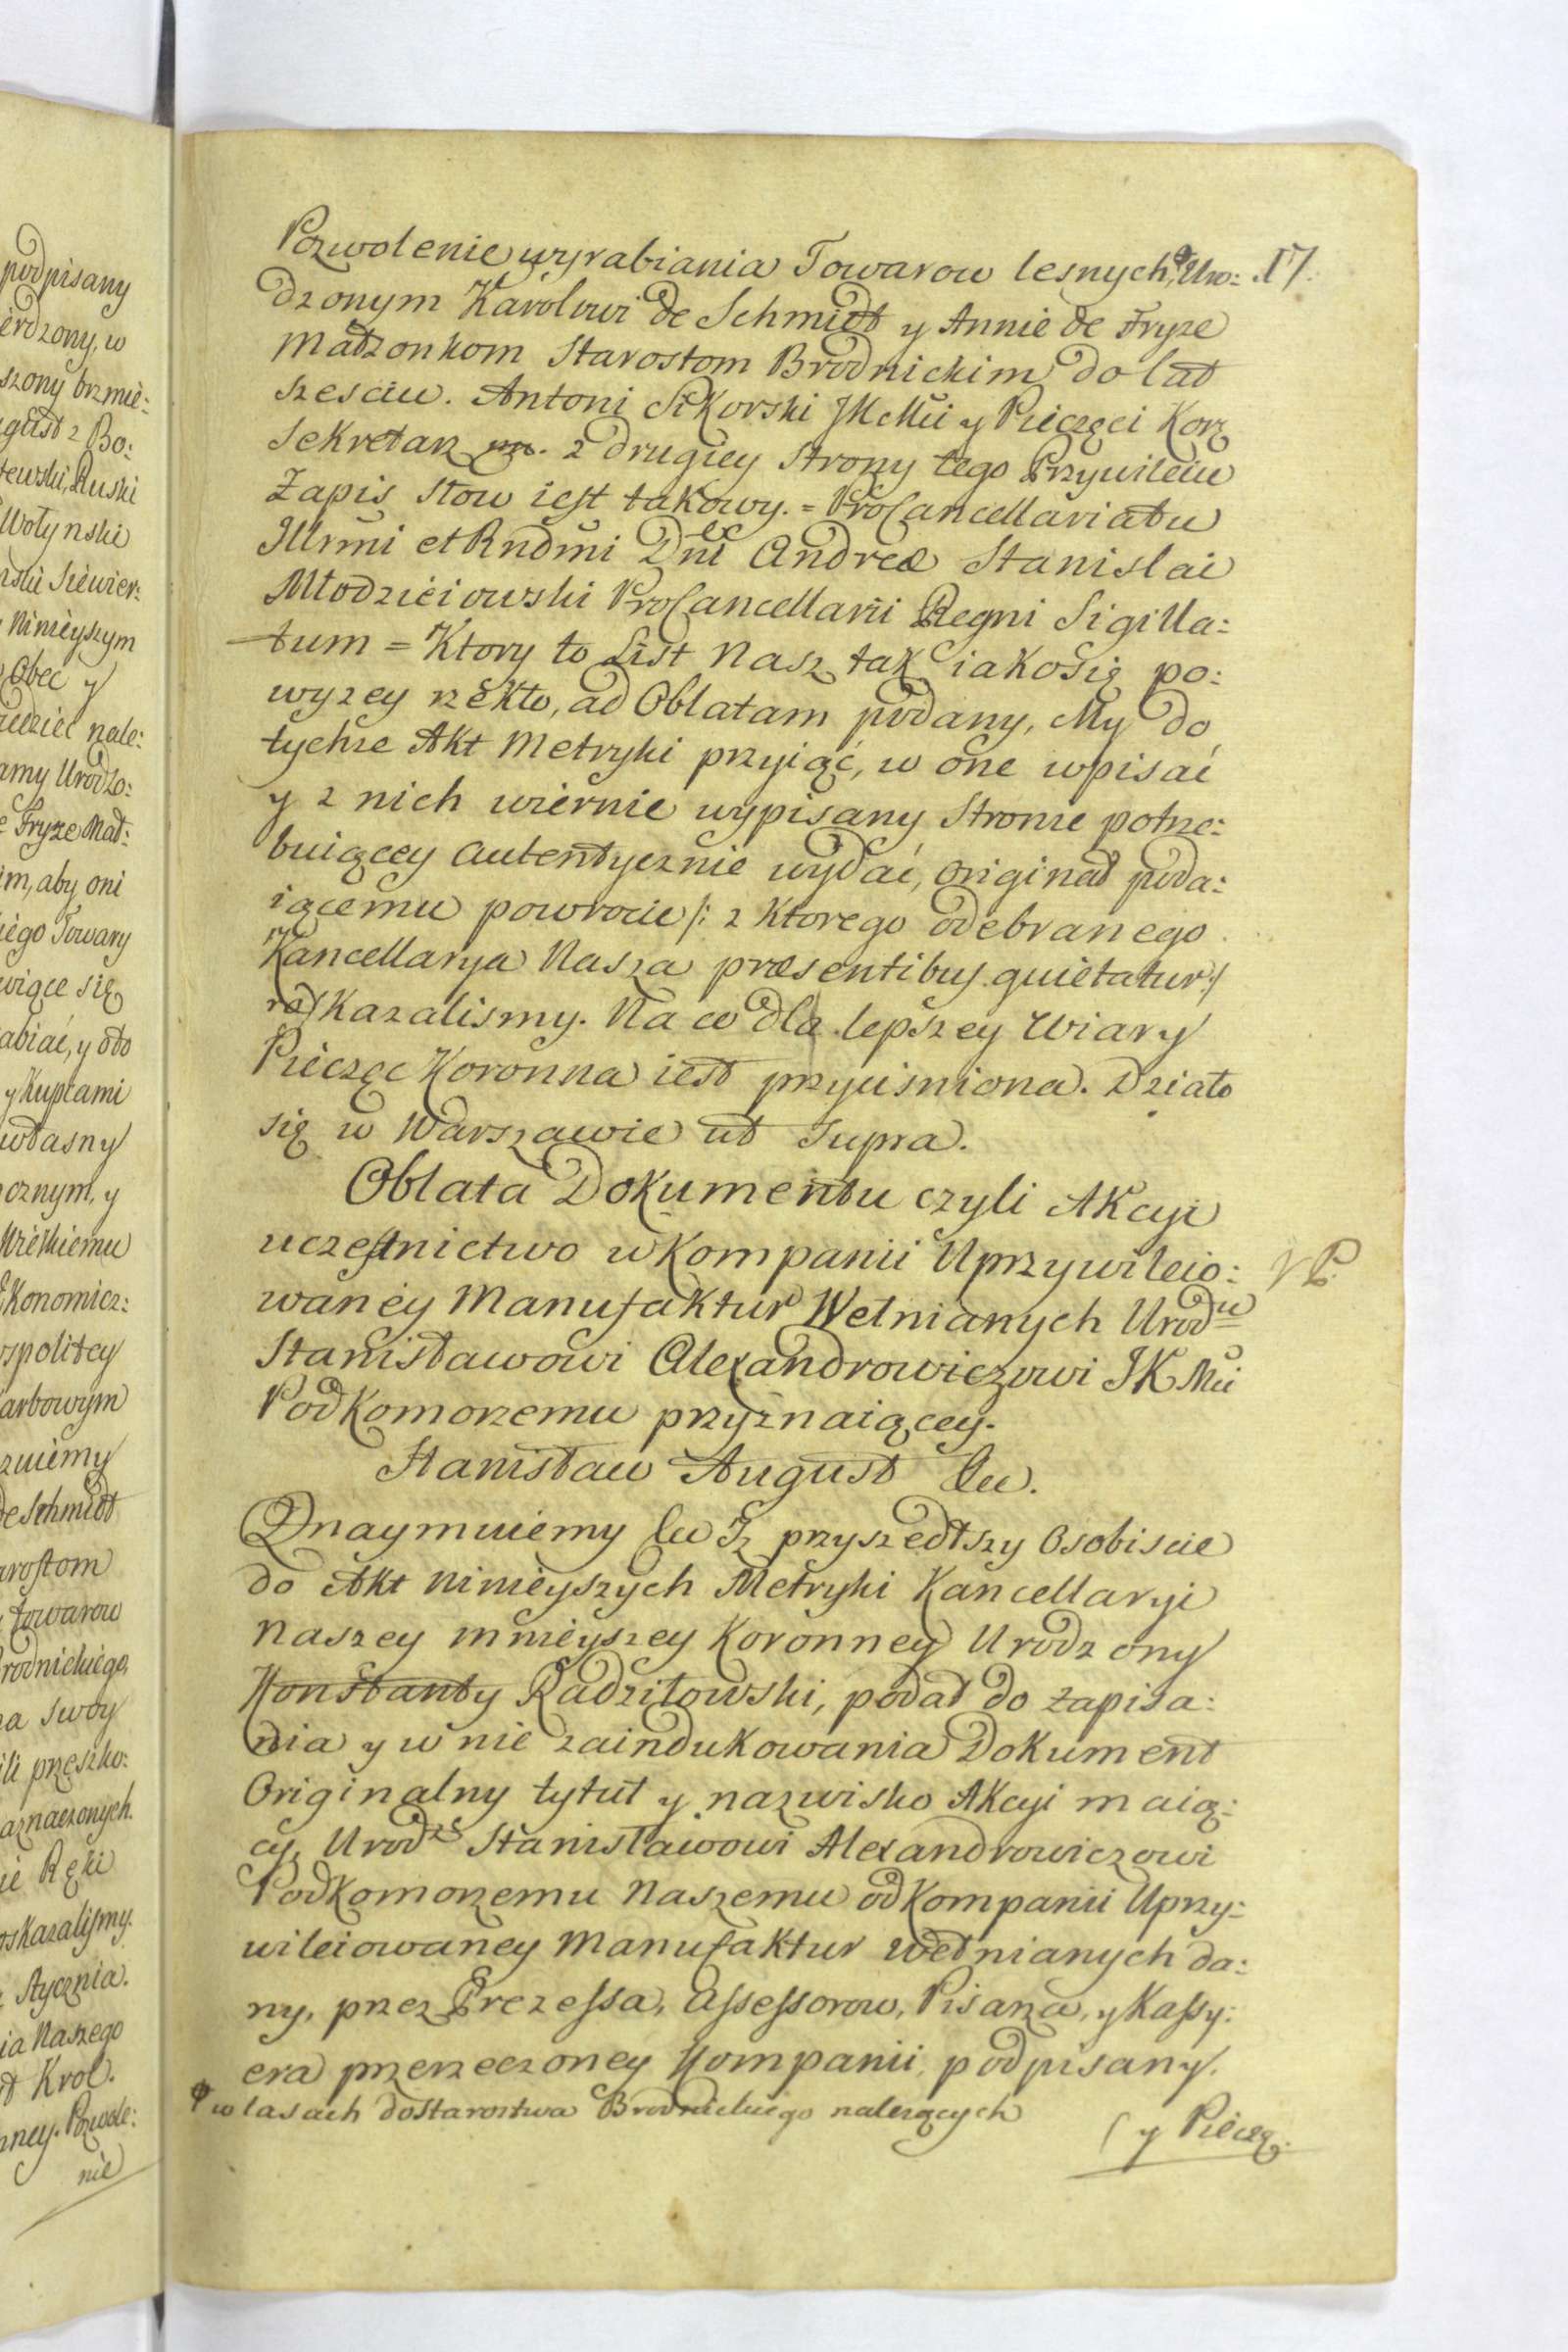 podpisany
ierdzony, w
szony brzmie:
gust z Bo:
ewski, Ruski
Wołynski
nski Siewier:
Ninieyszym
Obec y
iedziec nale:
amy Urodzo:
e Fryze Mał:
im, aby oni
iego Towary
wiące się
abiać, y oto
y Kupcami
własny
ocznym, y
Mieskiemu
Ekonomicz:
spolitey
arbowym
zuiemy
de Schmidt
arostom
towarow
rodnickiego,
na swoy
ili przeszko:
aznaczonych.
ie Ręki
oskazalismy.
Stycznia.
ia Naszego
Krol.
nney. Pozwole:
nie
Pozwolenie wyrabiania Towarow lesnych, ꝋ Uro: 17.
dzonym Karolowi de Schmidt y Annie de Fryze
Małżonkom Starostom Brodnickim do lat
szesciu. Antoni Sikorski JKMci y Pieczęci Kor:
Sekretarz mp. z drugiey strony tego Przywileiu
Zapis słow iest takowy. = ProCancellariatu
Illrmi et Rndmi Dni Andreæ Stanislai
Młodzieiowski ProCancellarii Regni Sigilla:
tum = Ktory to List Nasz tak iako się po:
wyzey rzekło, ad Oblatam podany, My do
tychże Akt Metryki przyiąć, w one wpisać
y z nich wiernie wypisany Stronie potrze:
buiącey autentycznie wydać, originał poda:
iącemu powrocić /: z Ktorego odebranego
Kancellarya Nasza præsentibus quietatur :/
roskazalismy. Na co dla lepszey Wiary
Pieczęc Koronna iest przycisniona. Działo
się w Warszawie ut Supra.
Oblata Dokumentu czyli Akcyi
uczestnictwo w Kompanii Uprzywileio:
waney Manufaktur Wełnianych Urodu
Stanisławowi Alexandrowiczowi JKMci
Podkomorzemu przyznaiącey.
Stanisław August &c.
Oznaymuiemy &c Iz przyszedłszy Osobiscie
do Akt ninieyszych Metryki Kancellaryi
Naszey mnieyszey Koronney Urodzony
Konstanty Radziłowski, podał do zapisa:
nia y w nie zaindukowania Dokument
Originalny tytuł y nazwisko Akcyi maią:
cy, Urodze Stanisławowi Alexandrowiczowi
Podkomorzemu Naszemu od Kompanii Uprzy:
wileiowaney Manufaktur wełnianych da:
ny, przez Prezessa, Assessorow, Pisarza, y Kassy:
era przerzeczoney Kompanii podpisany.
ꝋ w lasach do Starostwa Brodnickiego należących
(y Pieczę: